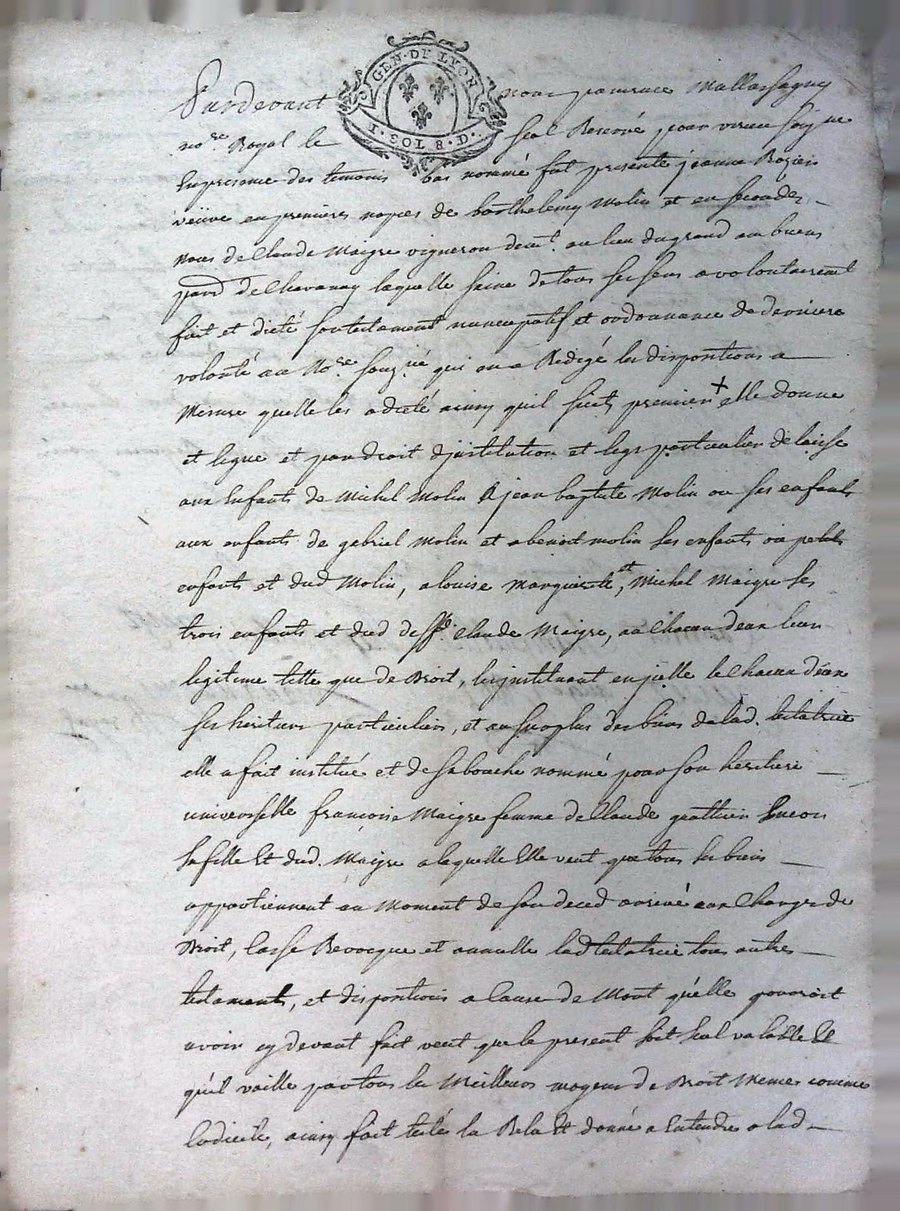 GEN · DE LYON
1 · SOL 8 · D ·
Pardevant nous
no.re Royal le Scel Renové pour vieux soigné
En presence des temoins bas nommé fut presente jeanne Rozier
veüve en premieres nopces de barthelemy Molin et en secondes
noces de Claude Maigre vigneron demt. au lieu du grand
de Chavanay laquelle saine de tous ses sens a volontairemt
fait et dicté son testament nuncupatif et ordonnance de derniere
volonté au No.re souz.né qui en a Redigé les dispositions a
Mesure quelle les a dicté ainsy qu'il suit, premier + elle donne
et legue et par droit d'jnstitution et legs particulier delaisse
aux Enfants de Michel Molin a jean baptiste Molin ou ses enfants
aux enfants de gabriel Molin et a benoit molin ses enfants ou petits
enfants et dud Molin, a louise marguerite, et Michel Maigre ses
trois enfants et dud deff. Claude Maigre, a Chacun d'eux leur
legitime telle que de Droit, les jnstituant en jcelle le Chacun d'eux
ses heritiers particuliers, et au surplus des biens de lad. testatrice
elle a fait institué et de sa bouche nommé pour son heritiere
universelle françoise Maigre femme de Claude
sa fille Et dud. Maigre a laquelle Elle veut que tous ses biens
appartiennent au Moment de son deced arrivé aux Charges de
Droit, Casse Revocque et annulle lad testatrice tous autre
testaments, et dispositions a Cause de Mort qu'elle pourroit
avoir cy devant fait veut que le present soit seul valable Et
qu'il vaille par tous les Meilleurs moyens de Droit Memes comme
Codicile, ainsy fait testé lu Relu Et donné a Entendre a lad